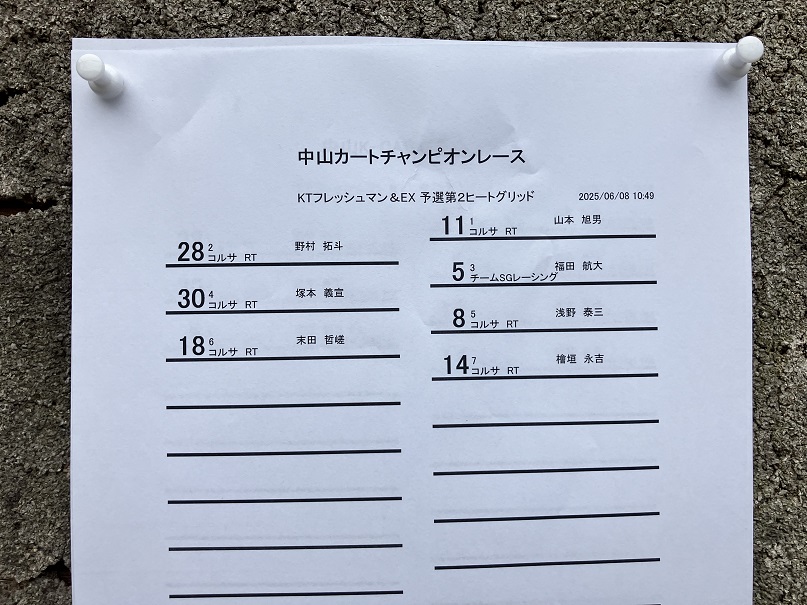 中山カートチャンピオンレース
KTフレッシュマン&EX 予選第2ヒートグリッド 2025/06/08 10:49
11 1 コルサ RT 山本 旭男
28 2 コルサ RT 野村 拓斗
5 3 チームSGレーシング 福田 航大
30 4 コルサ RT 塚本 義宣
8 5 コルサ RT 浅野 泰三
18 6 コルサ RT 末田 哲嵯
14 7 コルサ RT 檜垣 永吉